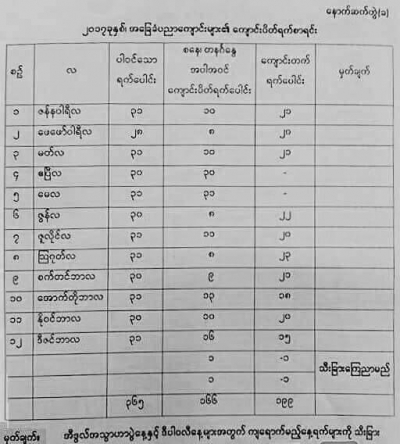 နောက်ဆက်တွဲ(၁)
၂၀၁၇ခုနှစ်၊ အခြေခံပညာကျောင်းများ၏ ကျောင်းပိတ်ရက်စာရင်း
စဉ် လ ပါဝင်သော ရက်ပေါင်း စနေ၊ တနင်္ဂနွေ အပါအဝင် ကျောင်းပိတ်ရက်ပေါင်း ကျောင်းတက် ရက်ပေါင်း မှတ်ချက်
၁ ဇန်နဝါရီလ ၃၁ ၁၀ ၂၁
၂ ဖေဖော်ဝါရီလ ၂၈ ၈ ၂၀
၃ မတ်လ ၃၁ ၁၀ ၂၁
၄ ဧပြီလ ၃၀ ၃၀ -
၅ မေလ ၃၁ ၃၁ -
၆ ဇွန်လ ၃၀ ၈ ၂၂
၇ ဇူလိုင်လ ၃၁ ၁၁ ၂၀
၈ ဩဂုတ်လ ၃၁ ၈ ၂၃
၉ စက်တင်ဘာလ ၃၀ ၉ ၂၁
၁၀ အောက်တိုဘာလ ၃၁ ၁၃ ၁၈
၁၁ နိုဝင်ဘာလ ၃၀ ၁၀ ၂၀
၁၂ ဒီဇင်ဘာလ ၃၁ ၁၆ ၁၅
၁ -၁ သီးခြားကြေညာမည်
၁ -၁
၃၆၅ ၁၆၆ ၁၉၉
မှတ်ချက်။ အီဒွလ်အသွာဟာပွဲနေ့နှင့် ဒီပါဝလီနေ့များအတွက် ကျရောက်မည့်နေ့ရက်များကို သီးခြား